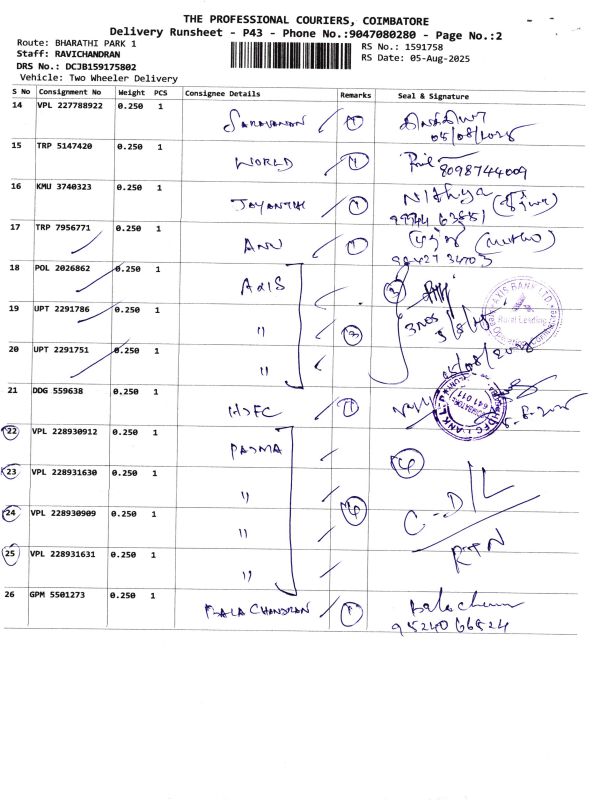 THE PROFESSIONAL COURIERS, COIMBATORE
Delivery Runsheet - P43 - Phone No.:9047080280 - Page No.:2
Route: BHARATHI PARK 1
Staff: RAVICHANDRAN
DRS No.: DCJB159175802
Vehicle: Two Wheeler Delivery
RS No.: 1591758
RS Date: 05-Aug-2025
S No Consignment No Weight PCS Consignee Details Remarks Seal & Signature
14 VPL 227788922 0.250 1 SARAVANAN 1
05/08/2025
15 TRP 5147420 0.250 1 WORLD 1
8098744009
16 KMU 3740323 0.250 1 JAYANTHI 1 Nithya
99944 63851
17 TRP 7956771 0.250 1 ANU 1
18 POL 2026862 0.250 1 AXIS 3
3 NOS
5/8/25
AXIS BANK LTD
Rural Lending
19 UPT 2291786 0.250 1 " 3
20 UPT 2291751 0.250 1 "
21 DDG 559638 0.250 1 HDFC 1
641 011
22 VPL 228930912 0.250 1 PADMA 4
23 VPL 228931630 0.250 1 "
24 VPL 228930909 0.250 1 " 4 C-D/L
RTN
25 VPL 228931631 0.250 1 "
26 GPM 5501273 0.250 1 BALA CHANDRAN 1
95240 66524